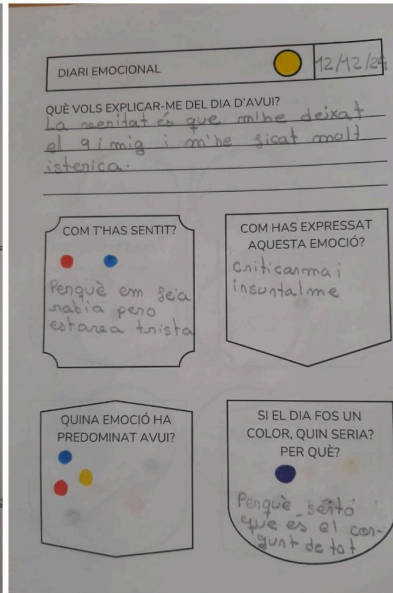 DIARI EMOCIONAL
12/12/24
QUÈ VOLS EXPLICAR-ME DEL DIA D'AVUI?
La veritat és que m'he deixat
el 9 i mig i m'he ficat molt
istenica.
COM T'HAS SENTIT?
Perquè em feia
rabia pero
estava trista
COM HAS EXPRESSAT
AQUESTA EMOCIÓ?
Criticanma i
insuntalme
QUINA EMOCIÓ HA
PREDOMINAT AVUI?
SI EL DIA FOS UN
COLOR, QUIN SERIA?
PER QUÈ?
Perquè sento
que es el con-
gunt de tot